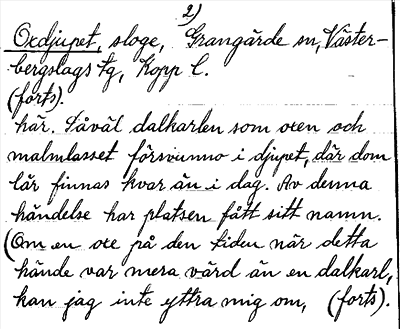 2)
Oxdjupet, sloge, Grangärde sn, Väster-
bergslags tg, Kopp l.
(forts).
här. Såväl dalkarlen som oxen och
malmlasset försvunno i djupet, där dom
lär finnas kvar än i dag. Av denna
händelse har platsen fått sitt namn.
(Om en oxe på den tiden när detta
hände var mera värd än en dalkarl,
kan jag inte yttra mig om, (forts).